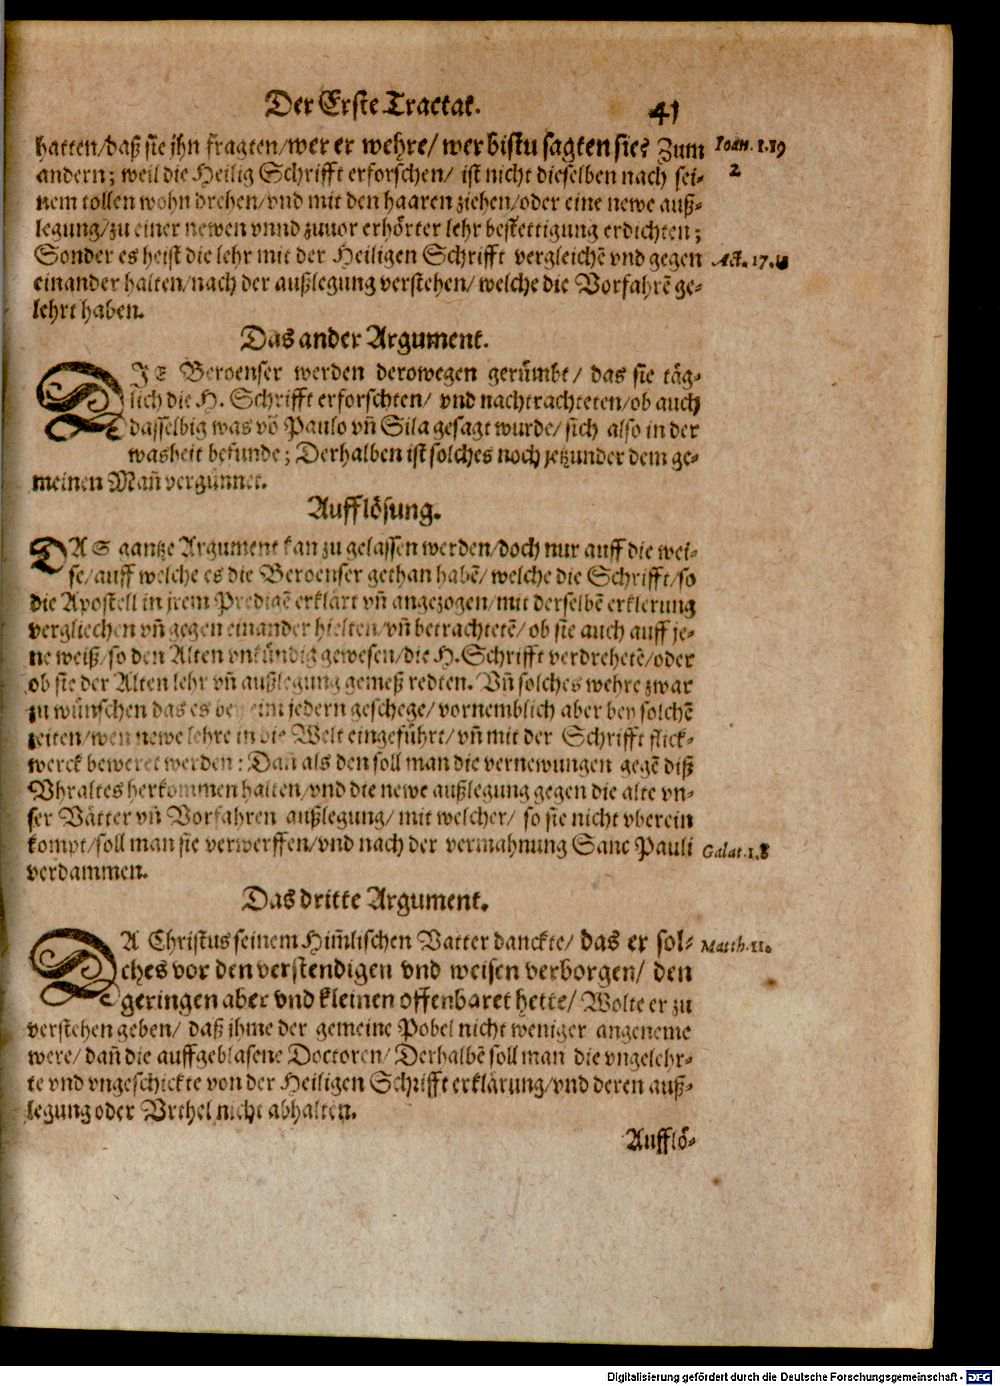 Der Erste Tractat. 41
hatten/daß sie jhn fragten/wer er wehre/ wer bistu sagten sie? Zum Ioan. 1.19
andern; weil die Heilig Schrifft erforschen/ ist nicht dieselben nach sei- 2
nem tollen wohn drehen/vnd mit den haaren ziehen/oder eine newe auß-
legung/zu einer newen vnnd zuuor erhörter lehr bestettigung erdichten;
Sonder es heist die lehr mit der Heiligen Schrifft vergleichē vnd gegen Act. 17.11
einander halten/nach der außlegung verstehen/welche die Vorfahrē ge-
lehrt haben.
Das ander Argument.
DJE Beroenser werden derowegen gerümbt/ das sie täg-
lich die H. Schrifft erforschten/ vnd nachtrachteten/ob auch
dasselbig was vō Paulo vn̄ Sila gesagt wurde/sich also in der
washeit befunde; Derhalben ist solches noch jetzunder dem ge-
meinen Man̄ vergünnet.
Aufflösung.
DAS gantze Argument kan zu gelassen werden/doch nur auff die wei-
se/auff welche es die Beroenser gethan habē/welche die Schrifft/so
die Apostell in jrem Predigē erklärt vn̄ angezogen/mit derselbē erklerung
vergliechen vn̄ gegen einander hielten/vn̄ betrachtetē/ob sie auch auff je-
ne weiß/so den Alten vnkündig gewesen/die H. Schrifft verdrehetē/oder
ob sie der Alten lehr vn̄ außlegung gemeß redten. Vn̄ solches wehre zwar
zu wünschen das es jedern geschege/vornemblich aber bey solchē
zeiten/wen newe lehre in die Welt eingeführt/vn̄ mit der Schrifft flick-
werck beweret werden: Dan̄ als den soll man die vernewungen gegē diß
Vhraltes herkommen halten/vnd die newe außlegung gegen die alte vn-
ser Vätter vn̄ Vorfahren außlegung/ mit welcher/ so sie nicht vberein
kompt/soll man sie verwerffen/vnd nach der vermahnung Sanc Pauli Galat. 1.8
verdammen.
Das dritte Argument.
DA Christus seinem Him̄lischen Vatter danckte/ das er sol- Matth. 11.
ches vor den verstendigen vnd weisen verborgen/ den
geringen aber vnd kleinen offenbaret hette/ Wolte er zu
verstehen geben/ daß jhme der gemeine Pobel nicht weniger angeneme
were/dan̄ die auffgeblasene Doctoren/ Derhalbē soll man die vngelehr-
te vnd vngeschickte von der Heiligen Schrifft erklärung/vnd deren auß-
legung oder Vrthel nicht abhalten.
Aufflö-
Digitalisierung gefördert durch die Deutsche Forschungsgemeinschaft - DFG